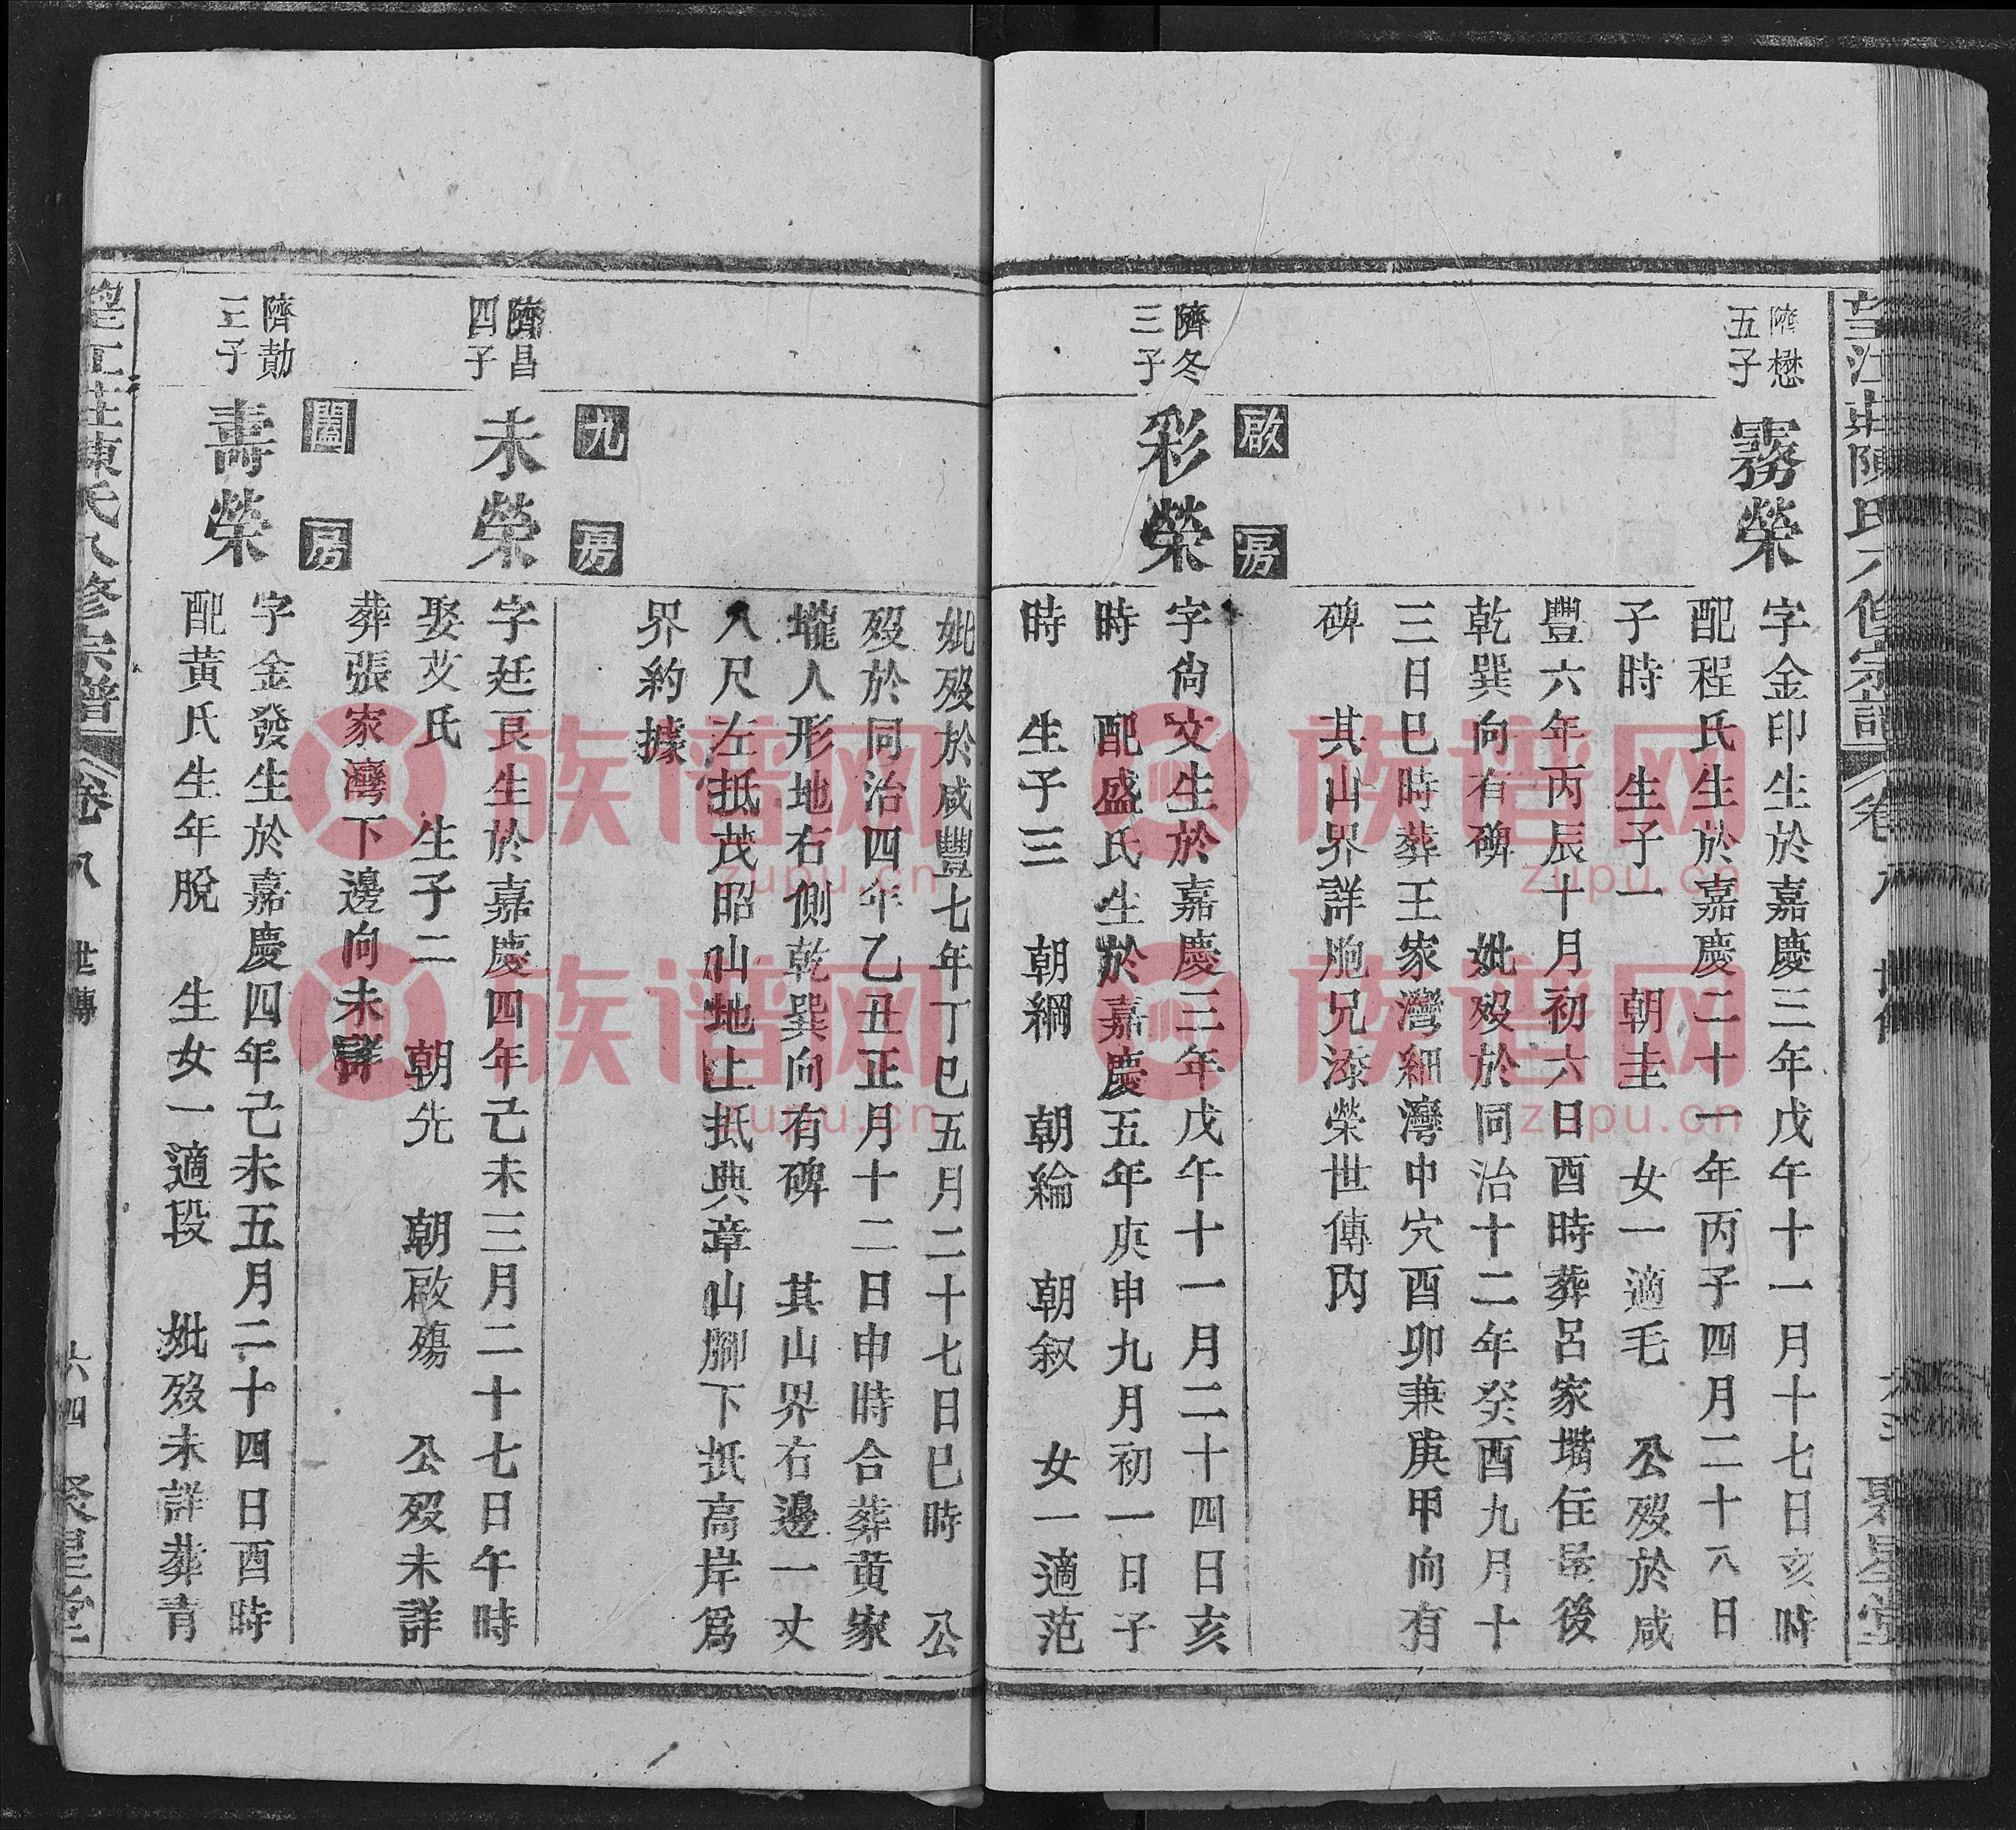 濟懋
五子
霧榮
字金印生於嘉慶三年戊午十一月十七日亥時
配程氏生於嘉慶二十一年丙子四月二十八日
子時　生子一　朝圭　女一適毛　公歿於咸
豐六年丙辰十月初六日酉時葬呂家墩住場後
乾巽向有碑　妣歿於同治十二年癸酉九月十
三日巳時葬王家灣細灣中穴酉卯兼庚甲向有
碑　其山界詳胞兄漆榮世傳內
啟房
濟冬
三子
彩榮
字尙文生於嘉慶三年戊午十一月二十四日亥
時　配盛氏生於嘉慶五年庚申九月初一日子
時　生子三　朝綱　朝綸　朝叙　女一適范
妣歿於咸豐七年丁巳五月二十七日巳時　公
歿於同治四年乙丑正月十二日申時合葬黃家
壠人形地右側乾巽向有碑　其山界右邊一丈
八尺左抵茂昭山地上抵典章山脚下抵高岸爲
界約據
九房
濟昌
四子
未榮
字廷艮生於嘉慶四年己未三月二十七日午時
娶艾氏　生子二　朝先　朝啟殤　公歿未詳
葬張家灣下邊向未詳
闔房
濟勛
三子
壽榮
字金發生於嘉慶四年己未五月二十四日酉時
配黃氏生年脫　生女一適段　妣歿未詳葬青
望江莊陳氏八修宗譜　卷八　世傳　六四　聚星堂
族谱网
zupu.cn
族谱网
zupu.cn
族谱网
zupu.cn
族谱网
zupu.cn